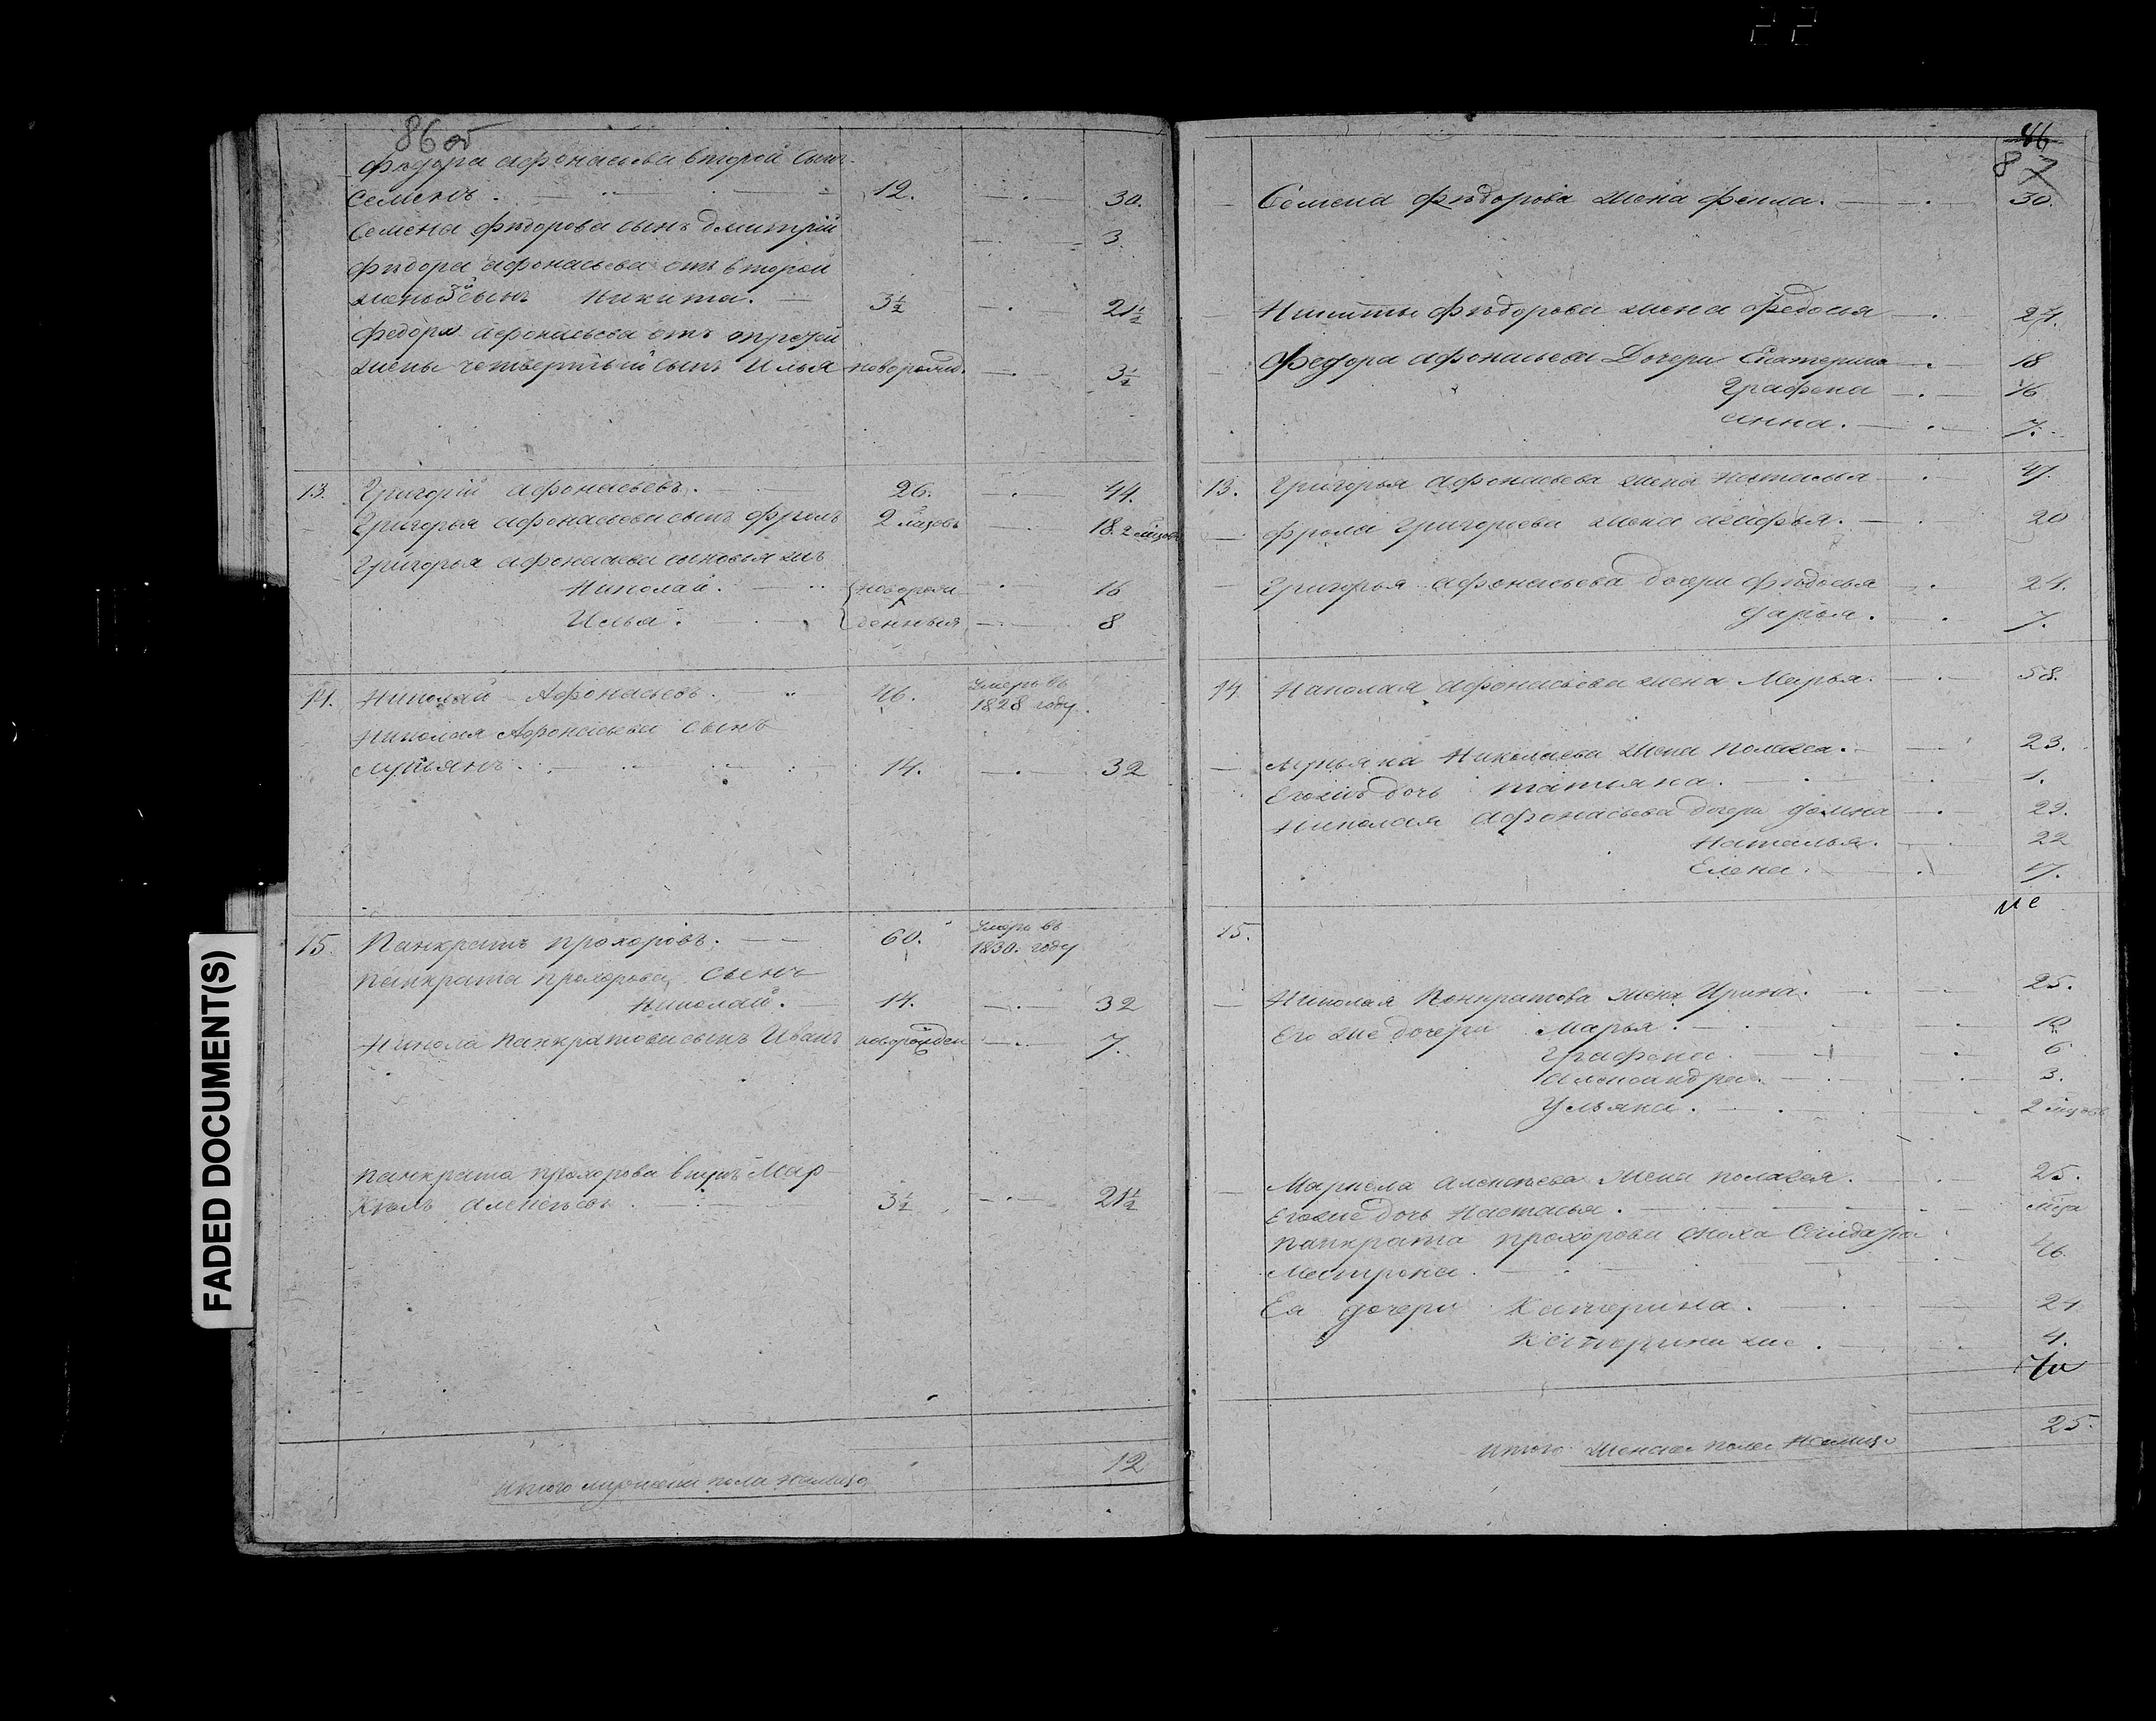 22
86 об
Федора афонасьева второй сынъ
Семенъ. 12. 30.
Семена федорова сынъ дмитрiй 3
федора афонасьева отъ второй
жены 3й сынъ Никита. 3½ 21½
федора афонасьева отъ третей
жены четвертый сынъ Илья новорожд. 3½
13. Григорiй афонасьевъ. 26. 44.
Григорья афонасьева сынъ фролъ 2 мѣсяцовъ 18. 2 мѣсяц
Григорья афонасьева сыновья жъ
Николай. новорож 16
Илья. денныя 8
14. Николай Афонасьевъ. 46. Умеръ въ
1828 году
Николая Афонасьева сынъ
лукьянъ. 14. 32
15. Панкратъ прохоровъ. 60. Умеръ въ
1830. году
панкрата прохорова сынъ
Николай. 14. 32
Никола панкратова сынъ Иванъ новорожден 7.
панкрата прохорова внукъ Мар
кѣлъ алексѣевъ 3½ 21½
итого мужеска пола налицо 12
46
87
Семена федорова жена фекла. 30.
Никиты федорова жена федосья 24.
Федора афонасьева Дочери Екатерина 18
Графена 16
анна. 7.
13. Григорья афонасьева жена Настасья 47.
фрола григорьева жена агафья. 20
Григорья афонасьева дочери федосья 24.
дарья. 7.
14. Николая афонасьева жена Марья. 58.
Лукьяна Николаева жена полагея. 23.
Егожъ дочь татьяна. 1.
Николая афонасьева дочери домна 29.
Наталья. 22
Елена. 17.
15.
Николая Панкратова жена Ирина. 25.
Его же дочери Марья. 10
Графена. 6
александра. 3.
Ульяна. 2 мѣсяцовъ
Маркела алексѣева жена полагея. 25.
Егоже дочь Настасья. мѣсяца
панкрата прохорова сноха Салдатка
Мастрона. 46.
Ея дочери Катерина. 24
Катерина же. 4.
Итого женска пола налицо 25.
FADED DOCUMENT(S)